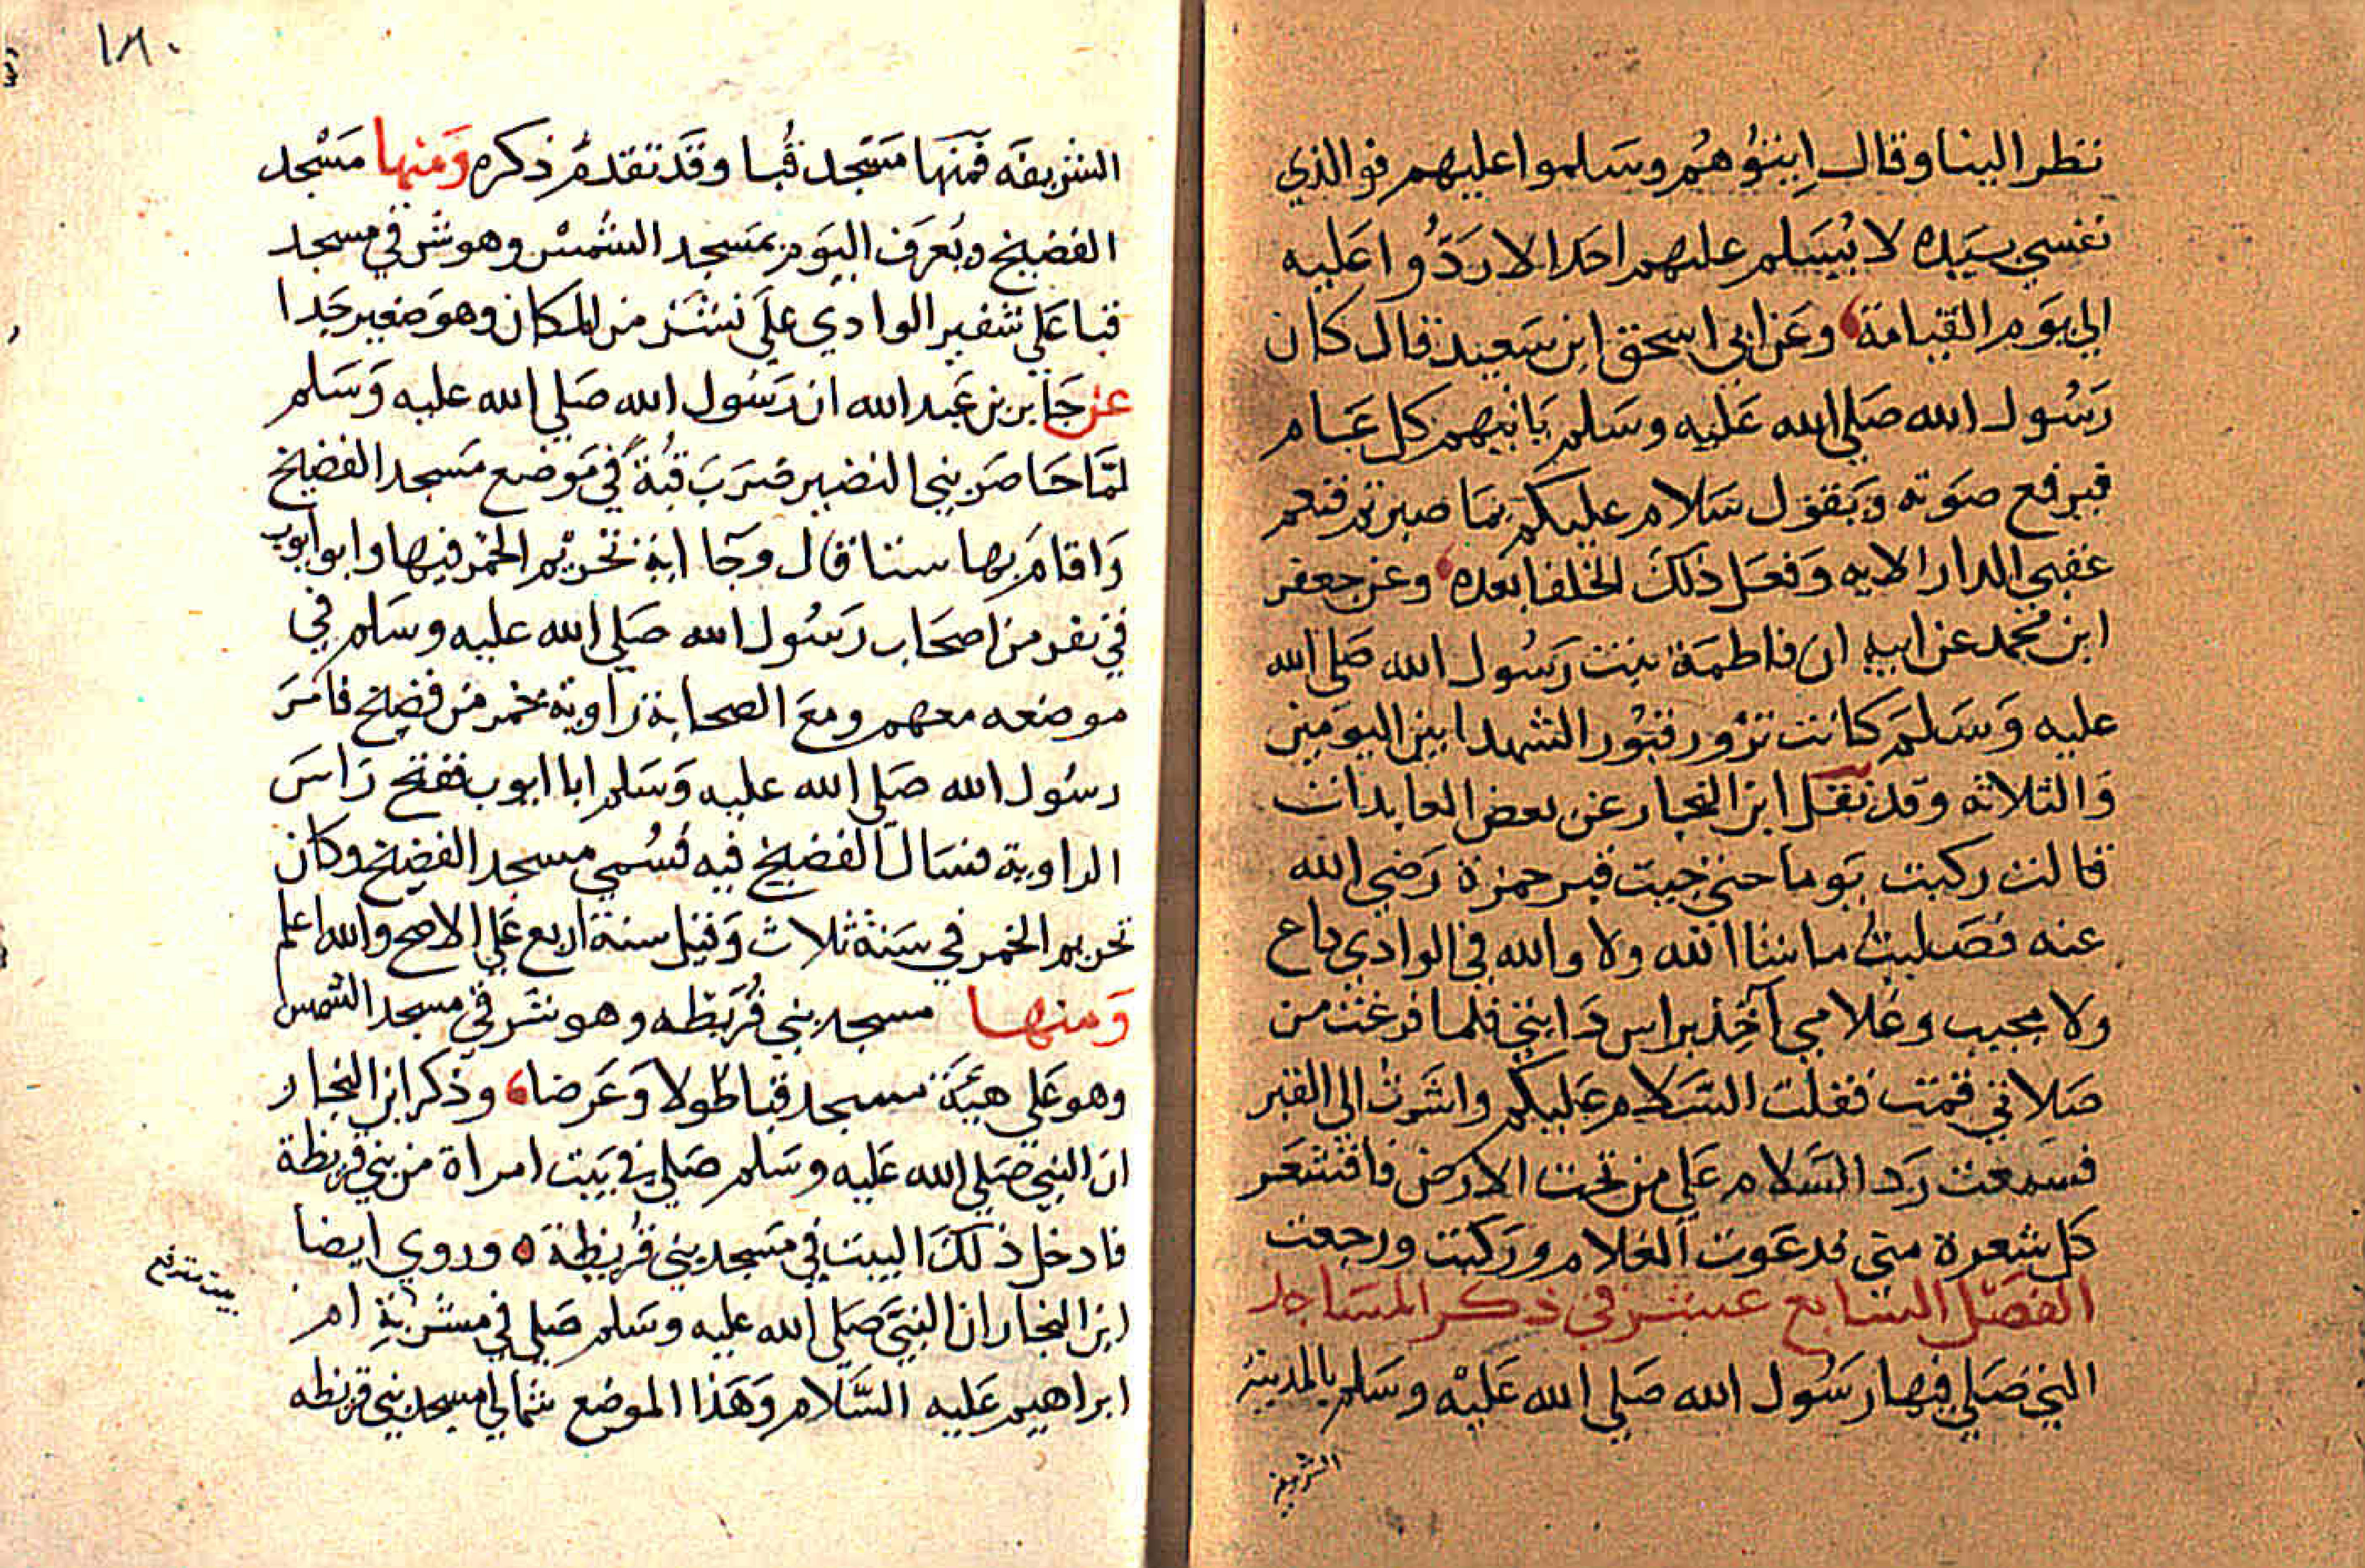 نظر الينا وقال ايتوهم وسلموا عليهم فوالذي
نفسي بيده لا يسلم عليهم احد الا ردوا عليه
الي يوم القيامة وعن ابي اسحق ابن سعيد قال كان
رسول الله صلي الله عليه وسلم ياتيهم كل عام
فيرفع صوته ويقول سلام عليكم بما صبرتم فنعم
عقبي الدار الايه وفعل ذلك الخلفا بعده وعن جعفر
ابن محمد عن ابيه ان فاطمة بنت رسول الله صلي الله
عليه وسلم كانت تزور قبور الشهدا بين اليومين
والثلاثه وقد نقل ابن النجار عن بعض العابدات
قالت ركبت يوما حتي جيت قبر حمزة رضي الله
عنه فصليت ما شا الله ولا والله في الوادي داع
ولا مجيب وغلامي آخذ براس دابتي فلما فرغت من
صلاتي قمت فقلت السلام عليكم واشرت الي القبر
فسمعت رد السلام علي من تحت الارض فاقشعر
كل شعرة مني فدعوت الغلام وركبت ورجعت
الفصل السابع عشر في ذكر المساجد
التي صلي فيها رسول الله صلي الله عليه وسلم بالمدينة
الشريفه
١٨٠
الشريفه فمنها مسجد قبا وقد تقدم ذكره ومنها مسجد
الفضيخ ويعرف اليوم بمسجد الشمس وهو شرقي مسجد
قبا علي شفير الوادي علي نشز من المكان وهو صغير جدا
عن جابر بن عبد الله ان رسول الله صلي الله عليه وسلم
لما حاصر بني النضير ضرب قبة في موضع مسجد الفضيخ
واقام بها ستا قال وجا اية تحريم الخمر فيها وابو ايوب
في نفر من اصحاب رسول الله صلي الله عليه وسلم في
موضعه معهم ومع الصحابة راوية خمر من فضيخ فامر
رسول الله صلي الله عليه وسلم ابا ايوب ففتح راس
الراوية فسال الفضيخ فيه فسمي مسجد الفضيخ وكان
تحريم الخمر في سنة ثلاث وقيل سنة اربع علي الاصح والله اعلم
ومنها مسجد بني قريظه وهو شرقي مسجد الشمس
وهو علي هيئة مسجد قبا طولا وعرضا وذكر ابن النجار
ان النبي صلي الله عليه وسلم صلي في بيت امراة من بني قريظة
فادخل ذلك البيت في مسجد بني قريظة ه وروي ايضا
ابن النجار ان النبي صلي الله عليه وسلم صلي في مشربة ام
ابراهيم عليه السلام وهذا الموضع شمالي مسجد بني قريظه
بيت مرتفع